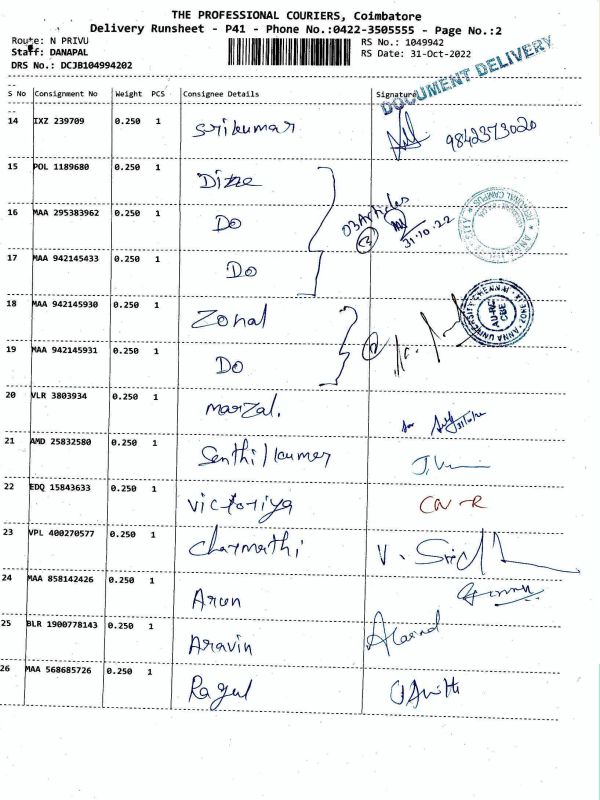 THE PROFESSIONAL COURIERS, Coimbatore
Delivery Runsheet - P41 - Phone No.:0422-3505555 - Page No.:2
Route: N PRIVU
RS No.: 1049942
Staff: DANAPAL
RS Date: 31-Oct-2022
DRS No.: DCJB104994202
DOCUMENT DELIVERY
S No Consignment No Weight PCS Consignee Details Signature
14 IXZ 239709 0.250 1 Srikumar 9842373020
15 POL 1189680 0.250 1
03 Articles
16 MAA 295383962 0.250 1 Do
31.10.22
17 MAA 942145433 0.250 1 Do
18 MAA 942145930 0.250 1 Zonal
19 MAA 942145931 0.250 1 Do
20 VLR 3803934 0.250 1 Marzal.
21 AMD 25832580 0.250 1 Senthilkumar
22 EDQ 15843633 0.250 1 Victoriya
23 VPL 400270577 0.250 1 Charmathi
24 MAA 858142426 0.250 1 Arun
25 BLR 1900778143 0.250 1 Aravin
26 MAA 568685726 0.250 1 Ragul